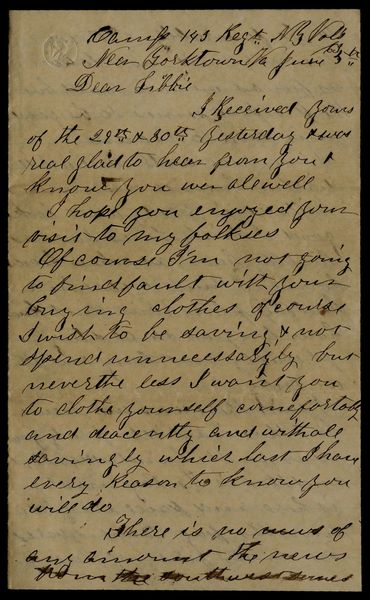 Camp 143 Regt N Y Vols
Near Yorktown Va June 5th
Dear Libbie
I Received yours
of the 29th & 30th yesterday & was
real glad to hear from you &
know you wer alewell
I hope you enjoyed your
visit to my folkses
Of course I'm not going
to find fault with your
buying clothes of course
I wish to be saving & not
spend unnecessarily but
never the less I want you
to clothe yourself comefortably
and deacently and withale
savingly which last I have
every reason to know you
will do
There is no news of
any amount the news
from the southwest